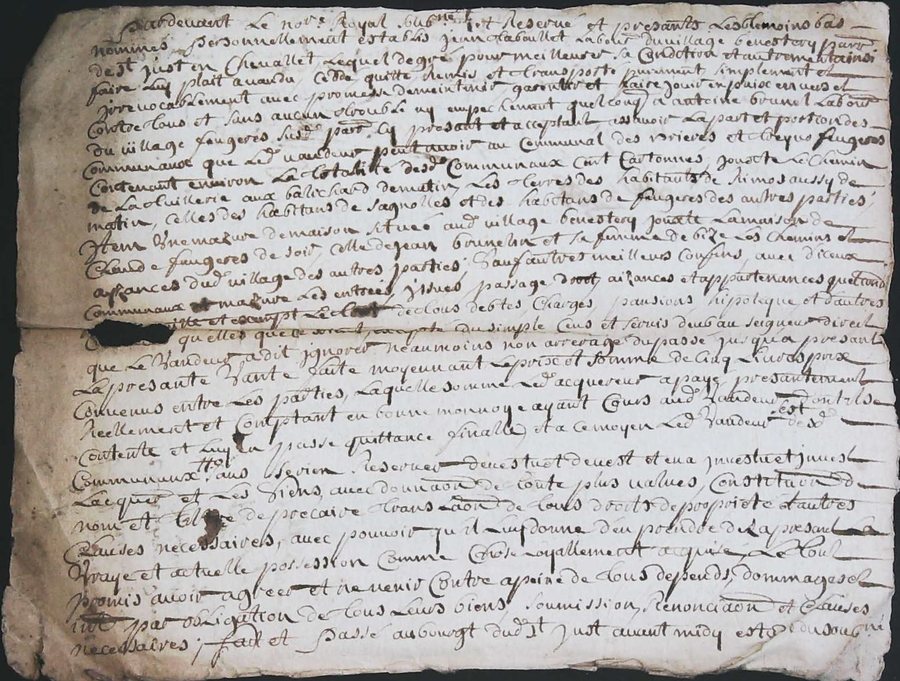 Pardevant Le nore Royal soubne et Reservé et presants Les temoins bas
nommes personnellement establi Jean Taboullet Labr du village benestery parr
de st Just en Chevallet Lequel de gré pour meilleurer sa Condition et autrement ainsi
faire Luy plait a vandu cedde quitte Remis et transporté purement simplement et
Irrevocablement avec promesse de maintenir garentir et faire Jouir en paix envers et
Contre tous et sans aucun trouble ny empechement quelconq a antoine brunel Labour
du village faugeres susd parr Cy presant et acceptant assavoir La part et portion des
Communaux que Led vandeur peut avoir au Communal des et faugeres
Contenant environ La totallité desd Communaux Cart Cartonnes, Jouste Le Chemin
de La thuillerie aux de matin, Les terres des habitants de Rimos aussy de
matin, Celles des habitans de sagnolles et des habitans de faugeres des autres parties;
Item Une mazure de maison située aud village benestery Jouxte La maison de
Claude faugeres de soir, Celle de Jean brunelin et sa femme de bize Les Chemins et
aizances dud village des autres parties; Sauf autres meilleurs Confins, avec d'iceux
Communaux et mazure Les entrées, Issues, passage droit aizances et appartenances
et exempt Le tout de tous debtes Charges, pansions hipoteque et d'autres
quelles que ce soit excepte du simple Cens et servis deub au seigneur direct
que Le Vandeur a dit ignorer neaumoins non arrerage du passé Jusqu'a presant
La presante Vante faite moyennant Le prix et somme de Cinq Livres prix
Convenus entre Les parties, Laquelle somme Led acquereur a payé presantement
Reellement et Comptant en bonne monnoye ayant Cours aud Vandeur dont il se
Contente et Luy en passe quittance finalle, et a ce moyen Led Vandeur s'est desd
Communaux sans Rien Reserver devestu et devest et en a Investu et Invest
Lacquer et Les siens, avec donnaon de toute plus values, Constituon de
nom et tiltre de precaire translaon de tous droits de proprieté et autres
Clauses necessaires, avec pouvoir qu'il Luy donne d'en prendre de La presant La
Vraye et actuelle possession Comme Chose Loyallement acquize Le tout
promis avoir agreer et ne venir Contre a peine de tous depends, dommages et
Int par obligation de tous Leurs biens soumission, Renonciaon et Clauses
necessaires; fait et passé au bourgt dud st Just avant midy